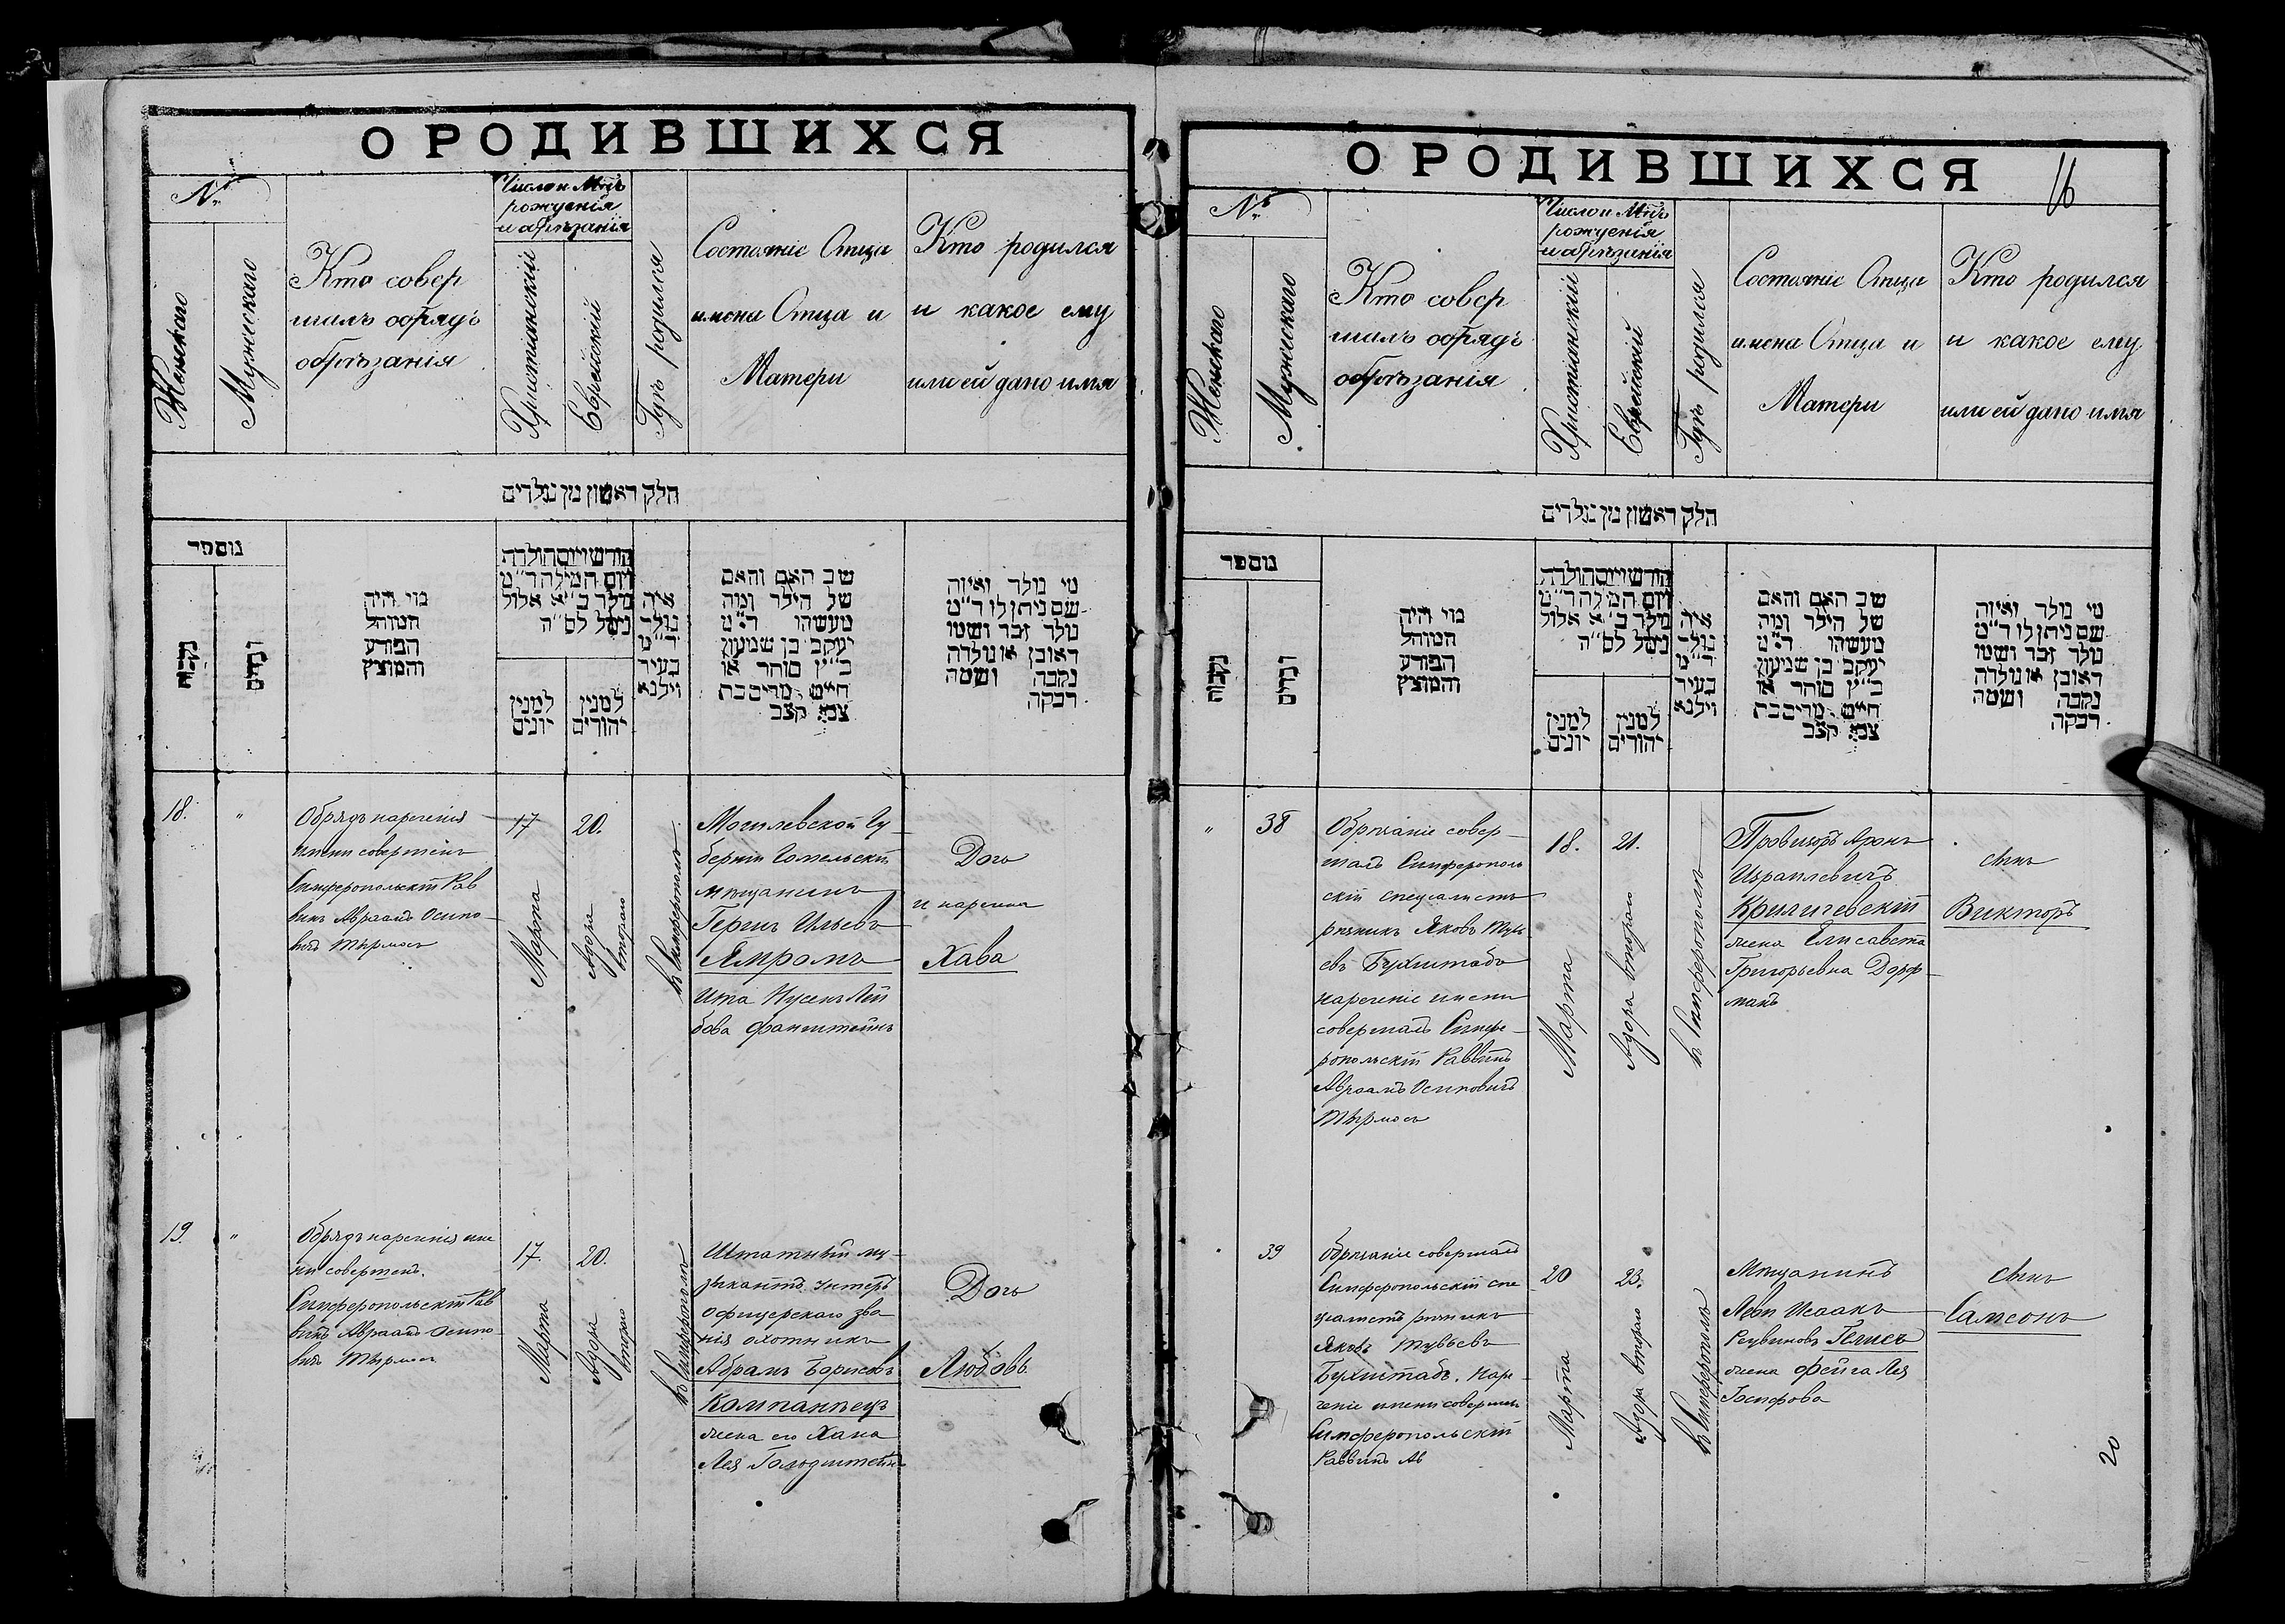 О РОДИВШИХСЯ
№
Женскаго
Мужескаго
Кто совер
шалъ обрядъ
обрѣзанія
Число и Мѣцъ
рожденія
и обрѣзанія
Христіанскій
Еврейскій
Гдѣ родился
Состояніе Отца
имена Отца и
Матери
Кто родился
и какое ему
или ей дано имя
חלק ראשון מן נולדים
מספר
נקבות
זכרים
מי היה
המוהל
הפורע
והמוצץ
חודש ויום הולדת
ויום המילה ד"מ
נולד ב"א אלול
נימל לס"ה
למנין
יונים
למנין
יהודים
איה
נולד
ד"מ
בעיר
וילנא
שב האם והאם
של הילד ומה
מעשהו ד"מ
יעקב בן שמעון
כ"ץ סוחר או
חייט מרים בת
צבי קצב
מי נולד ואיזה
שם ניתן לו ד"מ
נולד זכר ושמו
ראובן או נולדה
נקבה ושמה
רבקה
18.
"
Обрядъ нареченія
имени совершенъ
Симферопольскій Рав
винъ Авраамъ Осипо-
вичъ
17
Марта
20.
Адара
втораго
въ Симферополѣ
Могилевской Гу-
берніи Гомельскій
мѣщанинъ
Гершъ Ильевъ
Ямромъ
Ита Нусенъ Лей
бова
Дочь
и наречена
Хава
19.
"
Обрядъ нареченія име
ни совершенъ.
Симферопольскій Рав
винъ Авраамъ Осипо-
вичъ
17.
Марта
20.
Адара
втораго
въ Симферополѣ
Штатный му-
зыкантъ унтеръ
офицерскаго зва
нія охотникъ
Абрамъ Борисовъ
Компанѣецъ
жена его Хана
Лея Голодштейнъ
Дочь
Любовь
О РОДИВШИХСЯ
16
№
Женскаго
Мужескаго
Кто совер
шалъ обрядъ
обрѣзанія
Число и Мѣцъ
рожденія
и обрѣзанія
Христіанскій
Еврейскій
Гдѣ родился
Состояніе Отца
имена Отца и
Матери
Кто родился
и какое ему
или ей дано имя
חלק ראשון מן נולדים
מספר
נקבות
זכרים
מי היה
המוהל
הפורע
והמוצץ
חודש ויום הולדת
ויום המילה ד"מ
נולד ב"א אלול
נימל לס"ה
למנין
יונים
למנין
יהודים
איה
נולד
ד"מ
בעיר
וילנא
שב האם והאם
של הילד ומה
מעשהו ד"מ
יעקב בן שמעון
כ"ץ סוחר או
חייט מרים בת
צבי קצב
מי נולד ואיזה
שם ניתן לו ד"מ
נולד זכר ושמו
ראובן או נולדה
נקבה ושמה
רבקה
"
38
Обрѣзаніе совер-
шалъ Симферополь
скій спеціалистъ
рѣзникъ Яковъ Тувь
евъ Бухштабъ
нареченіе имени
совершалъ Симфе-
ропольскій Раввинъ
Авраамъ Осиповичъ
18.
Марта
21.
Адара втораго
въ Симферополѣ
Провизоръ Аронъ
Израилевичъ
Криличевскій
жена Елисавета
Григорьевна Дорф-
манъ
сынъ
Викторъ
39
Обрѣзаніе совершалъ
Симферопольскій спе
ціалистъ рѣзникъ
Яковъ Тувьевъ
Бухштабъ. Наре-
ченіе имени совершилъ
Симферопольскій
Раввинъ Ав
20
Марта
23.
Адара втораго
въ Симферополѣ
Мѣщанинъ
Лейзеръ Исаакъ
Рувиновъ Гелисъ
жена Фейга Лея
Іосифова
сынъ
Самсонъ
20